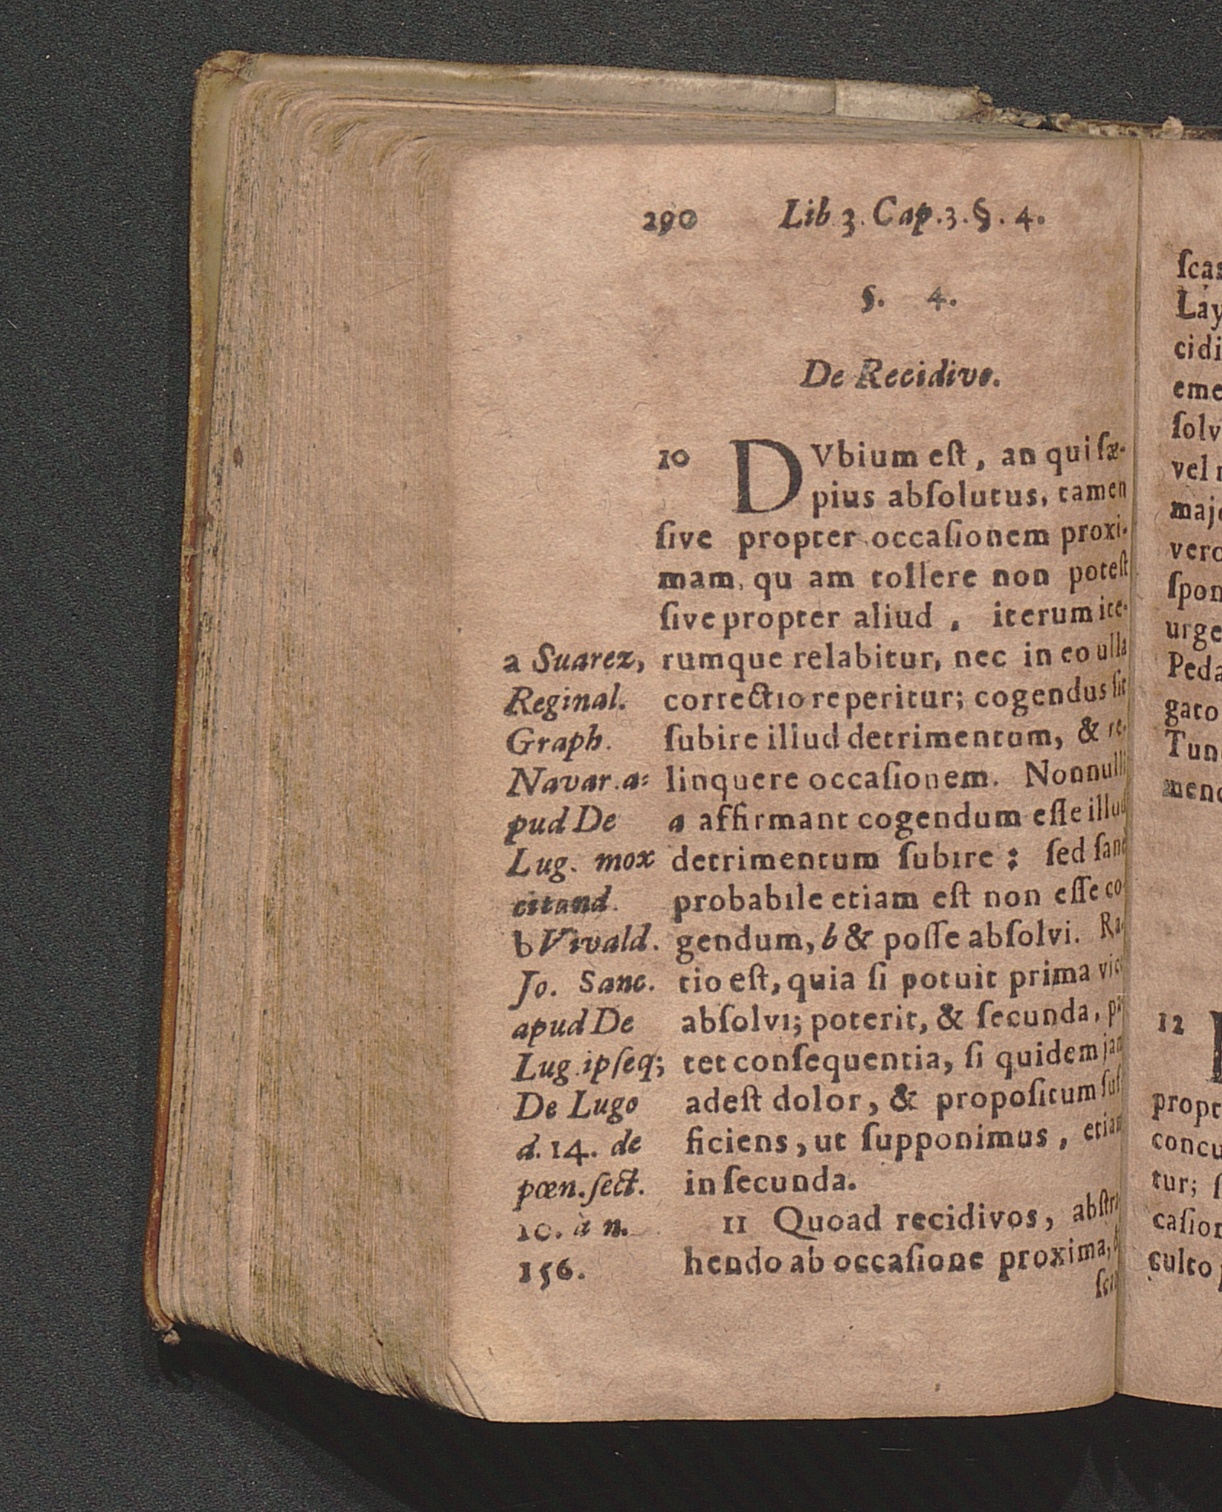 290 Lib 3. Cap. 3. §. 4.
§. 4.
De Recidivo.
10 DVbium eſt, an qui ſæ-
pius abſolutus, tamen
ſive propter occaſionem proxi-
mam, qu am tollere non poteſt
ſive propter aliud, iterum ite-
rumque relabitur, nec in eo ulla
correctio reperitur; cogendus ſit
ſubire illud detrimentum, & re-
linquere occaſionem. Nonnulli
a affirmant cogendum eſſe illud
detrimentum ſubire: ſed ſane
probabile etiam eſt non eſſe co
gendum, b & poſſe abſolvi. Ra-
tio eſt, quia ſi potuit prima
abſolvi; poterit, & ſecunda,
tet conſequentia, ſi quidem jam
adeſt dolor, & propoſitum ſuf
ficiens, ut ſupponimus, etiam
in ſecunda.
11 Quoad recidivos, abſtra
hendo ab occaſione proxima,
a Suarez,
Reginal.
Graph.
Navar. a-
pud De
Lug. mox
citand.
b Vivald.
Jo. Sanc.
apud De
Lug. ipſeq;
De Lugo
d. 14. de
pœn. ſect.
10. à n.
156.
ſcas
Lay
cidi
eme
ſolv
vel
majo
vero
ſpon
urge
Peda
gato
Tun
mend
12
propt
concu
tur;
caſion
culto